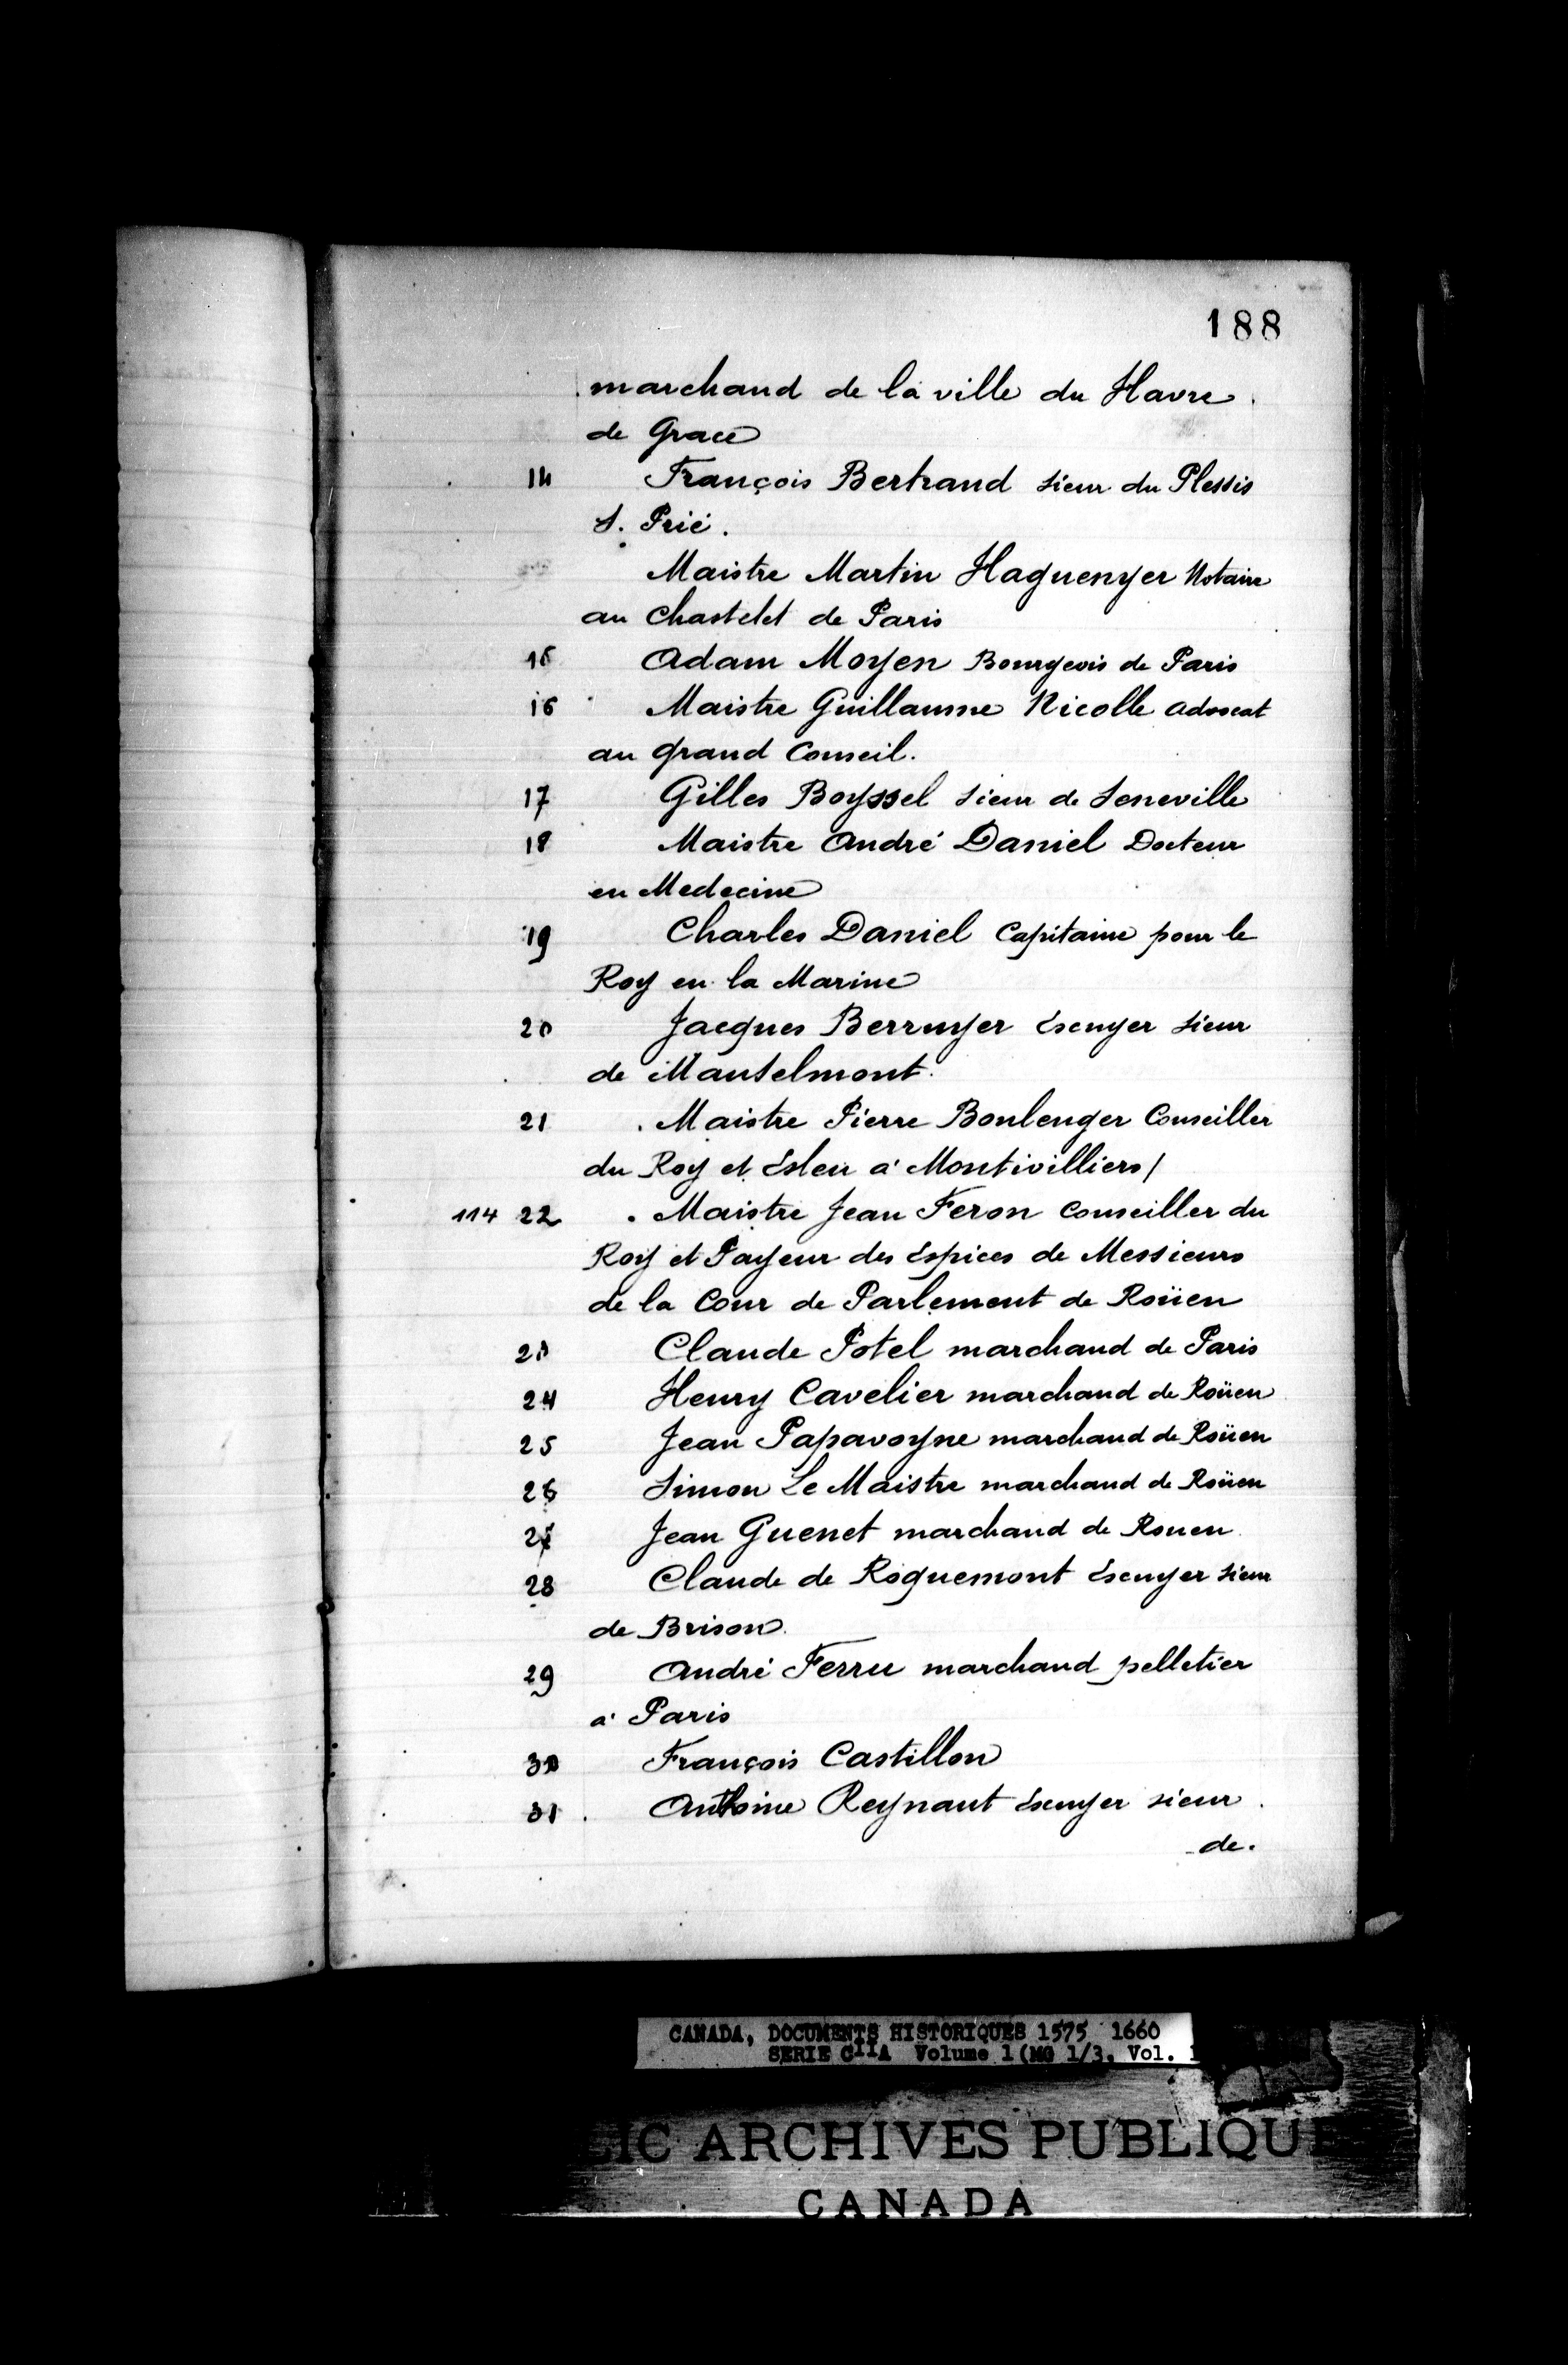 188
marchand de la ville du Havre
de Grace
14 François Bertrand sieur du Plessis
S. Prié.
Maistre Martin Haguenyer Notaire
au Chastelet de Paris
15 Adam Moyen Bourgeois de Paris
16 Maistre Guillaume Nicolle advocat
au grand Conseil.
17 Gilles Boyssel sieur de Seneville
18 Maistre André Daniel Docteur
en Medecine
19 Charles Daniel Capitaine pour le
Roy en la Marine
20 Jacques Berruyer Escuyer sieur
de Manselmont.
21 Maistre Pierre Boulenger Conseiller
du Roy et Esleu a Montivilliers/
114 22 Maistre Jean Feron Conseiller du
Roy et Payeur des Espices de Messieurs
de la Cour de Parlement de Roüen
23 Claude Potel marchand de Paris
24 Henry Cavelier marchand de Roüen
25 Jean Papavoyne marchand de Roüen
26 Simon Le Maistre marchand de Roüen
27 Jean Guenet marchand de Rouen
28 Claude de Roquemont Escuyer sieur
de Brison.
29 André Ferru marchand pelletier
a Paris
30 François Castillon
31 Anthoine Reynaut Escuyer sieur
de.
CANADA, DOCUMENTS HISTORIQUES 1575 1660
SERIE CIIA Volume 1 (MG 1/3, Vol. 1
IC ARCHIVES PUBLIQUE
CANADA